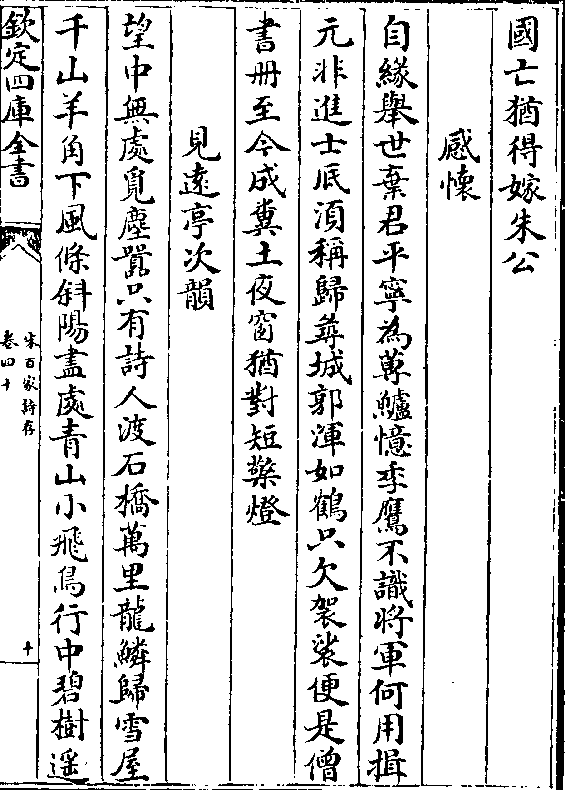 國亡猶得嫁朱公
感懷
自緣舉世棄君平寧為蓴鱸憶季鷹不識將軍何用揖
元非進士底須稱歸尋城郭渾如鶴只欠袈裟便是僧
書册至今成糞土夜窗猶對短檠燈
見遠亭次韻
望中無處覓塵囂只有詩人渡石橋萬里龍鱗歸雪屋
千山羊角下風條斜陽盡處青山小飛鳥行中碧樹遥
欽定四庫全書
宋百家詩存
卷四十
十